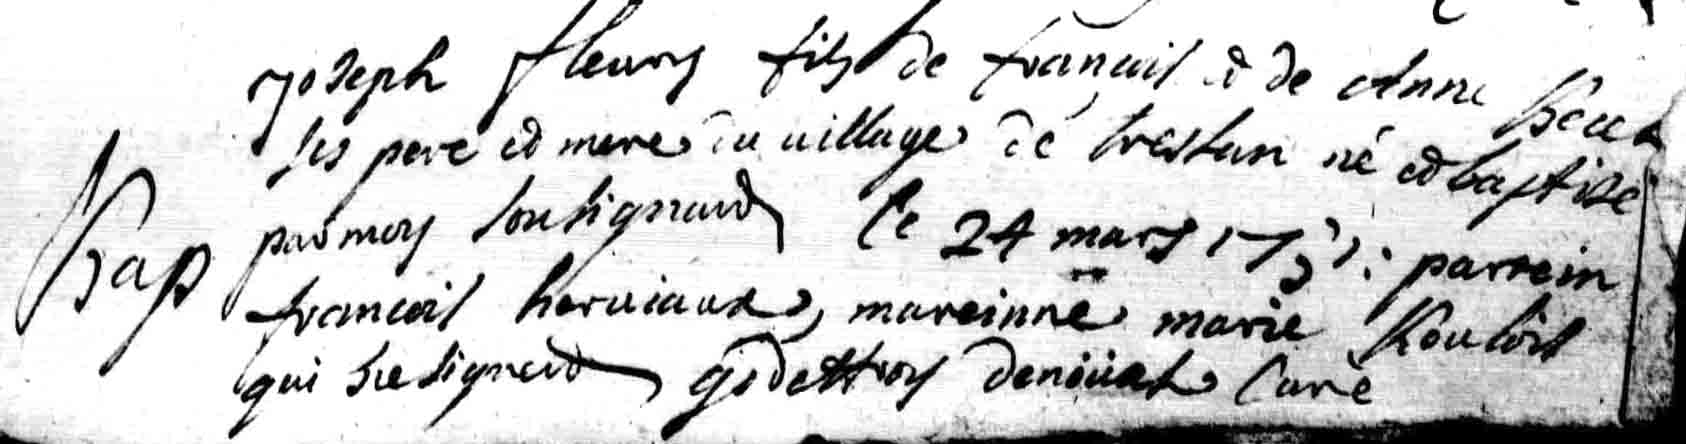 joseph fleury fils de françois et de Anne
ses pere et mere du village de trestan né et baptisé
par moy sousignant Le 24 mars parrein
Bap
francois herviaux, mareinne marie
qui ne signent godeffroy denoual Curé